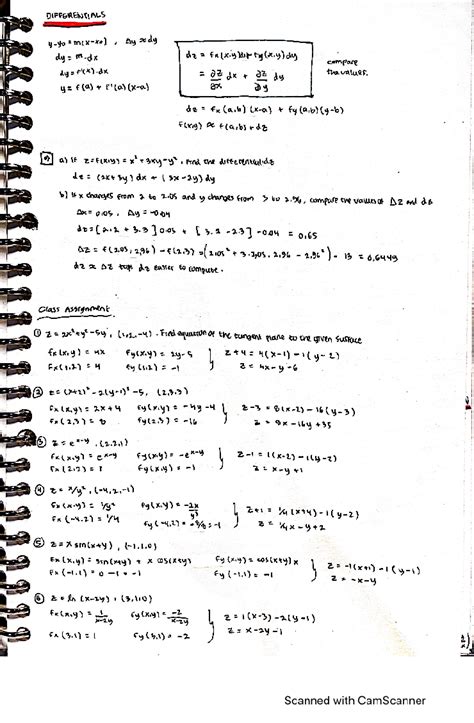 DIFFERENTIALS
y-y₀ = m(x-x₀) , Δy ≈ dy
dy = m.dx
dy = f'(x).dx
y = f(a) + f'(a)(x-a)
dz = fx(x,y)dx + fy(x,y)dy
= ∂z/∂x dx + ∂z/∂y dy
compare
the values.
dz = fx(a,b)(x-a) + fy(a,b)(y-b)
f(x,y) ≈ f(a,b) + dz
a) If z = f(x,y) = x² + 3xy - y², find the differential dz
dz = (2x+3y) dx + (3x-2y) dy
b) If x changes from 2 to 2.05 and y changes from 3 to 2.96, compare the values of Δz and dz
Δx = 0.05 , Δy = -0.04
dz = [2.2 + 3.3] 0.05 + [3.2 - 2.3] -0.04 = 0,65
Δz = f(2.05, 2.96) - f(2,3) = (2.05² + 3.2,05.2,96 - 2,96²) - 13 = 0,6449
dz ≈ Δz dz easier to compute.
Class Assignment.
① z = 2x² + y² - 5y, (1,2,-4). Find equation of the tangent plane to the given surface
fx(x,y) = 4x fy(x,y) = 2y-5 z+4 = 4(x-1) - 1(y-2)
fx(1,2) = 4 fy(1,2) = -1 z = 4x-y-6
② z = (x+2)² - 2(y-1)² - 5, (2,3,3)
fx(x,y) = 2x+4 fy(x,y) = -4y-4 z-3 = 8(x-2) - 16(y-3)
fx(2,3) = 8 fy(2,3) = -16 z = 8x-16y+35
③ z = e^x-y, (2,2,1)
fx(x,y) = e^x-y fy(x,y) = -e^x-y z-1 = 1(x-2) - 1(y-2)
fx(2,2) = 1 fy(x,y) = -1 z = x-y+1
④ z = x/y², (-4,2,-1)
fx(x,y) = 1/y² fy(x,y) = -2x/y³ z+1 = 1/4(x+4) - 1(y-2)
fx(-4,2) = 1/4 fy(-4,2) = -8/8 = -1 z = 1/4x-y+2
⑤ z = x sin(x+y), (-1,1,0)
fx(x,y) = sin(x+y) + x cos(x+y) fy(x,y) = cos(x+y)x z = -1(x+1) - 1(y-1)
fx(-1,1) = 0 -1 = -1 fy(-1,1) = -1 z = -x-y
⑥ z = ln(x-2y), (3,1,0)
fx(x,y) = 1/x-2y fy(x,y) = -2/x-2y z = 1(x-3) - 2(y-1)
fx(3,1) = 1 fy(3,1) = -2 z = x-2y-1
Scanned with CamScanner